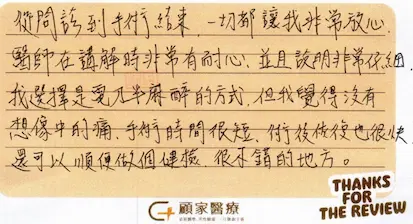 從問診到手術結束,一切都讓我非常放心,
醫師在講解時非常有耐心,並且說明非常仔細,
我選擇是嬰兒半麻醉的方式,但我覺得沒有
想像中的痛,手術時間很短,術後恢復也很快,
還可以順便做個健檢,很不錯的地方。
THANKS
FOR
THE REVIEW
顧家醫療